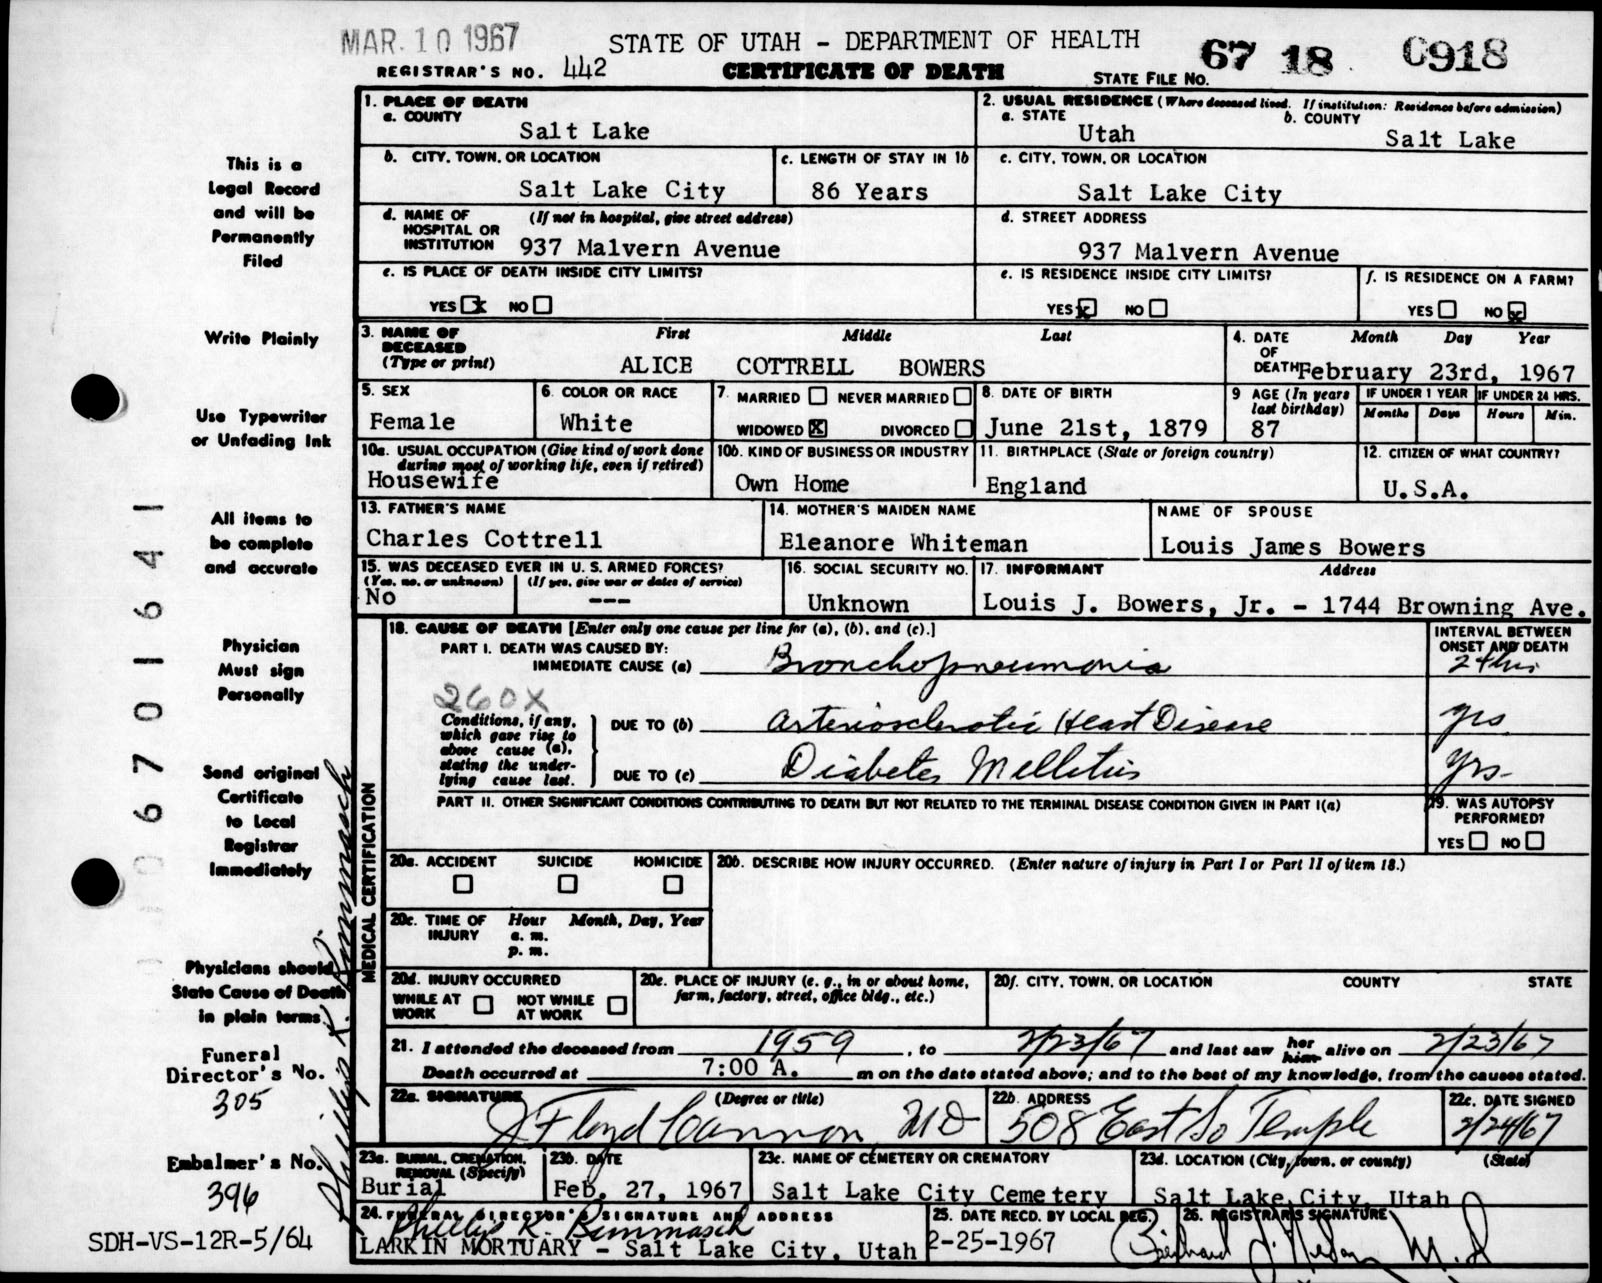 MAR. 10 1967
STATE OF UTAH - DEPARTMENT OF HEALTH
REGISTRAR'S NO. 442
CERTIFICATE OF DEATH
STATE FILE NO. 67 18 0918
This is a
Legal Record
and will be
Permanently
Filed
Write Plainly
Use Typewriter
or Unfading Ink
All items to
be complete
and accurate
Physician
Must sign
Personally
Send original
Certificate
to Local
Registrar
Immediately
Physicians should
State Cause of Death
in plain terms
Funeral
Director's No.
305
Embalmer's No.
396
SDH-VS-12R-5/64
0670 1641
1. PLACE OF DEATH
a. COUNTY
Salt Lake
2. USUAL RESIDENCE (Where deceased lived. If institution: Residence before admission)
a. STATE
Utah
b. COUNTY
Salt Lake
b. CITY, TOWN, OR LOCATION
Salt Lake City
c. LENGTH OF STAY IN 1b
86 Years
c. CITY, TOWN, OR LOCATION
Salt Lake City
d. NAME OF (If not in hospital, give street address)
HOSPITAL OR
INSTITUTION 937 Malvern Avenue
d. STREET ADDRESS
937 Malvern Avenue
e. IS PLACE OF DEATH INSIDE CITY LIMITS?
YES X NO
e. IS RESIDENCE INSIDE CITY LIMITS?
YES X NO
f. IS RESIDENCE ON A FARM?
YES NO X
3. NAME OF First Middle Last
DECEASED
(Type or print) ALICE COTTRELL BOWERS
4. DATE Month Day Year
OF
DEATH February 23rd, 1967
5. SEX
Female
6. COLOR OR RACE
White
7. MARRIED NEVER MARRIED
WIDOWED X DIVORCED
8. DATE OF BIRTH
June 21st, 1879
9 AGE (In years
last birthday)
87
IF UNDER 1 YEAR
Months Days
IF UNDER 24 HRS.
Hours Min.
10a. USUAL OCCUPATION (Give kind of work done
during most of working life, even if retired)
Housewife
10b. KIND OF BUSINESS OR INDUSTRY
Own Home
11. BIRTHPLACE (State or foreign country)
England
12. CITIZEN OF WHAT COUNTRY?
U.S.A.
13. FATHER'S NAME
Charles Cottrell
14. MOTHER'S MAIDEN NAME
Eleanore Whiteman
NAME OF SPOUSE
Louis James Bowers
15. WAS DECEASED EVER IN U. S. ARMED FORCES?
(Yes, no, or unknown) (If yes, give war or dates of service)
No ---
16. SOCIAL SECURITY NO.
Unknown
17. INFORMANT Address
Louis J. Bowers, Jr. - 1744 Browning Ave.
MEDICAL CERTIFICATION
18. CAUSE OF DEATH [Enter only one cause per line for (a), (b), and (c).]
INTERVAL BETWEEN
ONSET AND DEATH
PART I. DEATH WAS CAUSED BY:
IMMEDIATE CAUSE (a) Bronchopneumonia 24 hrs
260X
Conditions, if any,
which gave rise to
above cause (a),
stating the under-
lying cause last.
DUE TO (b) Arteriosclerotic Heart Disease yrs
DUE TO (c) Diabetes Mellitus yrs.
PART II. OTHER SIGNIFICANT CONDITIONS CONTRIBUTING TO DEATH BUT NOT RELATED TO THE TERMINAL DISEASE CONDITION GIVEN IN PART I(a)
19. WAS AUTOPSY
PERFORMED?
YES NO
20a. ACCIDENT SUICIDE HOMICIDE
20b. DESCRIBE HOW INJURY OCCURRED. (Enter nature of injury in Part I or Part II of item 18.)
20c. TIME OF Hour Month, Day, Year
INJURY a. m.
p. m.
20d. INJURY OCCURRED
WHILE AT WORK NOT WHILE AT WORK
20e. PLACE OF INJURY (e. g., in or about home,
farm, factory, street, office bldg., etc.)
20f. CITY, TOWN, OR LOCATION COUNTY STATE
21. I attended the deceased from 1959, to 2/23/67 and last saw her him alive on 2/23/67
Death occurred at 7:00 A. m on the date stated above; and to the best of my knowledge, from the causes stated.
22a. SIGNATURE (Degree or title)
J Floyd Cannon MD
22b. ADDRESS
508 East So Temple
22c. DATE SIGNED
2/24/67
23a. BURIAL, CREMATION,
REMOVAL (Specify)
Burial
23b. DATE
Feb. 27, 1967
23c. NAME OF CEMETERY OR CREMATORY
Salt Lake City Cemetery
23d. LOCATION (City, town, or county) (State)
Salt Lake City, Utah
24. FUNERAL DIRECTOR'S SIGNATURE AND ADDRESS
Phyllis K.
LARKIN MORTUARY - Salt Lake City, Utah
25. DATE RECD. BY LOCAL REG.
2-25-1967
26. REGISTRAR'S SIGNATURE
M.D
Phyllis K.